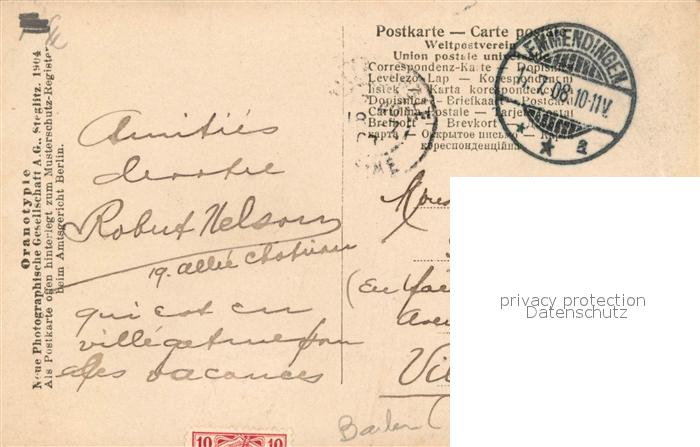 Postkarte — Carte postale
Weltpostverein
Union postale universelle
Correspondenz-Karte — Dopisnice
Levelező-Lap — Korespondent
Karta korespondenc
Dopisnica — Briefkaart — Postcard
Cartolina postale — Tarjeta postal
Brefkort — Brevkort
карта — Открытое письмо
кореспонденційна
EMMENDINGEN
7.08.10-11V.
* * a
Oranotypie
Neue Photographische Gesellschaft A.G., Steglitz. 1904
Als Postkarte offen hinterlegt zum Musterschutz-Register
beim Amtsgericht Berlin.
Amitiés
de votre
Robert Nelson
19. allée
qui est en
villégiature pour
des vacances
(En
Vil
10 10
Baden
privacy protection
Datenschutz